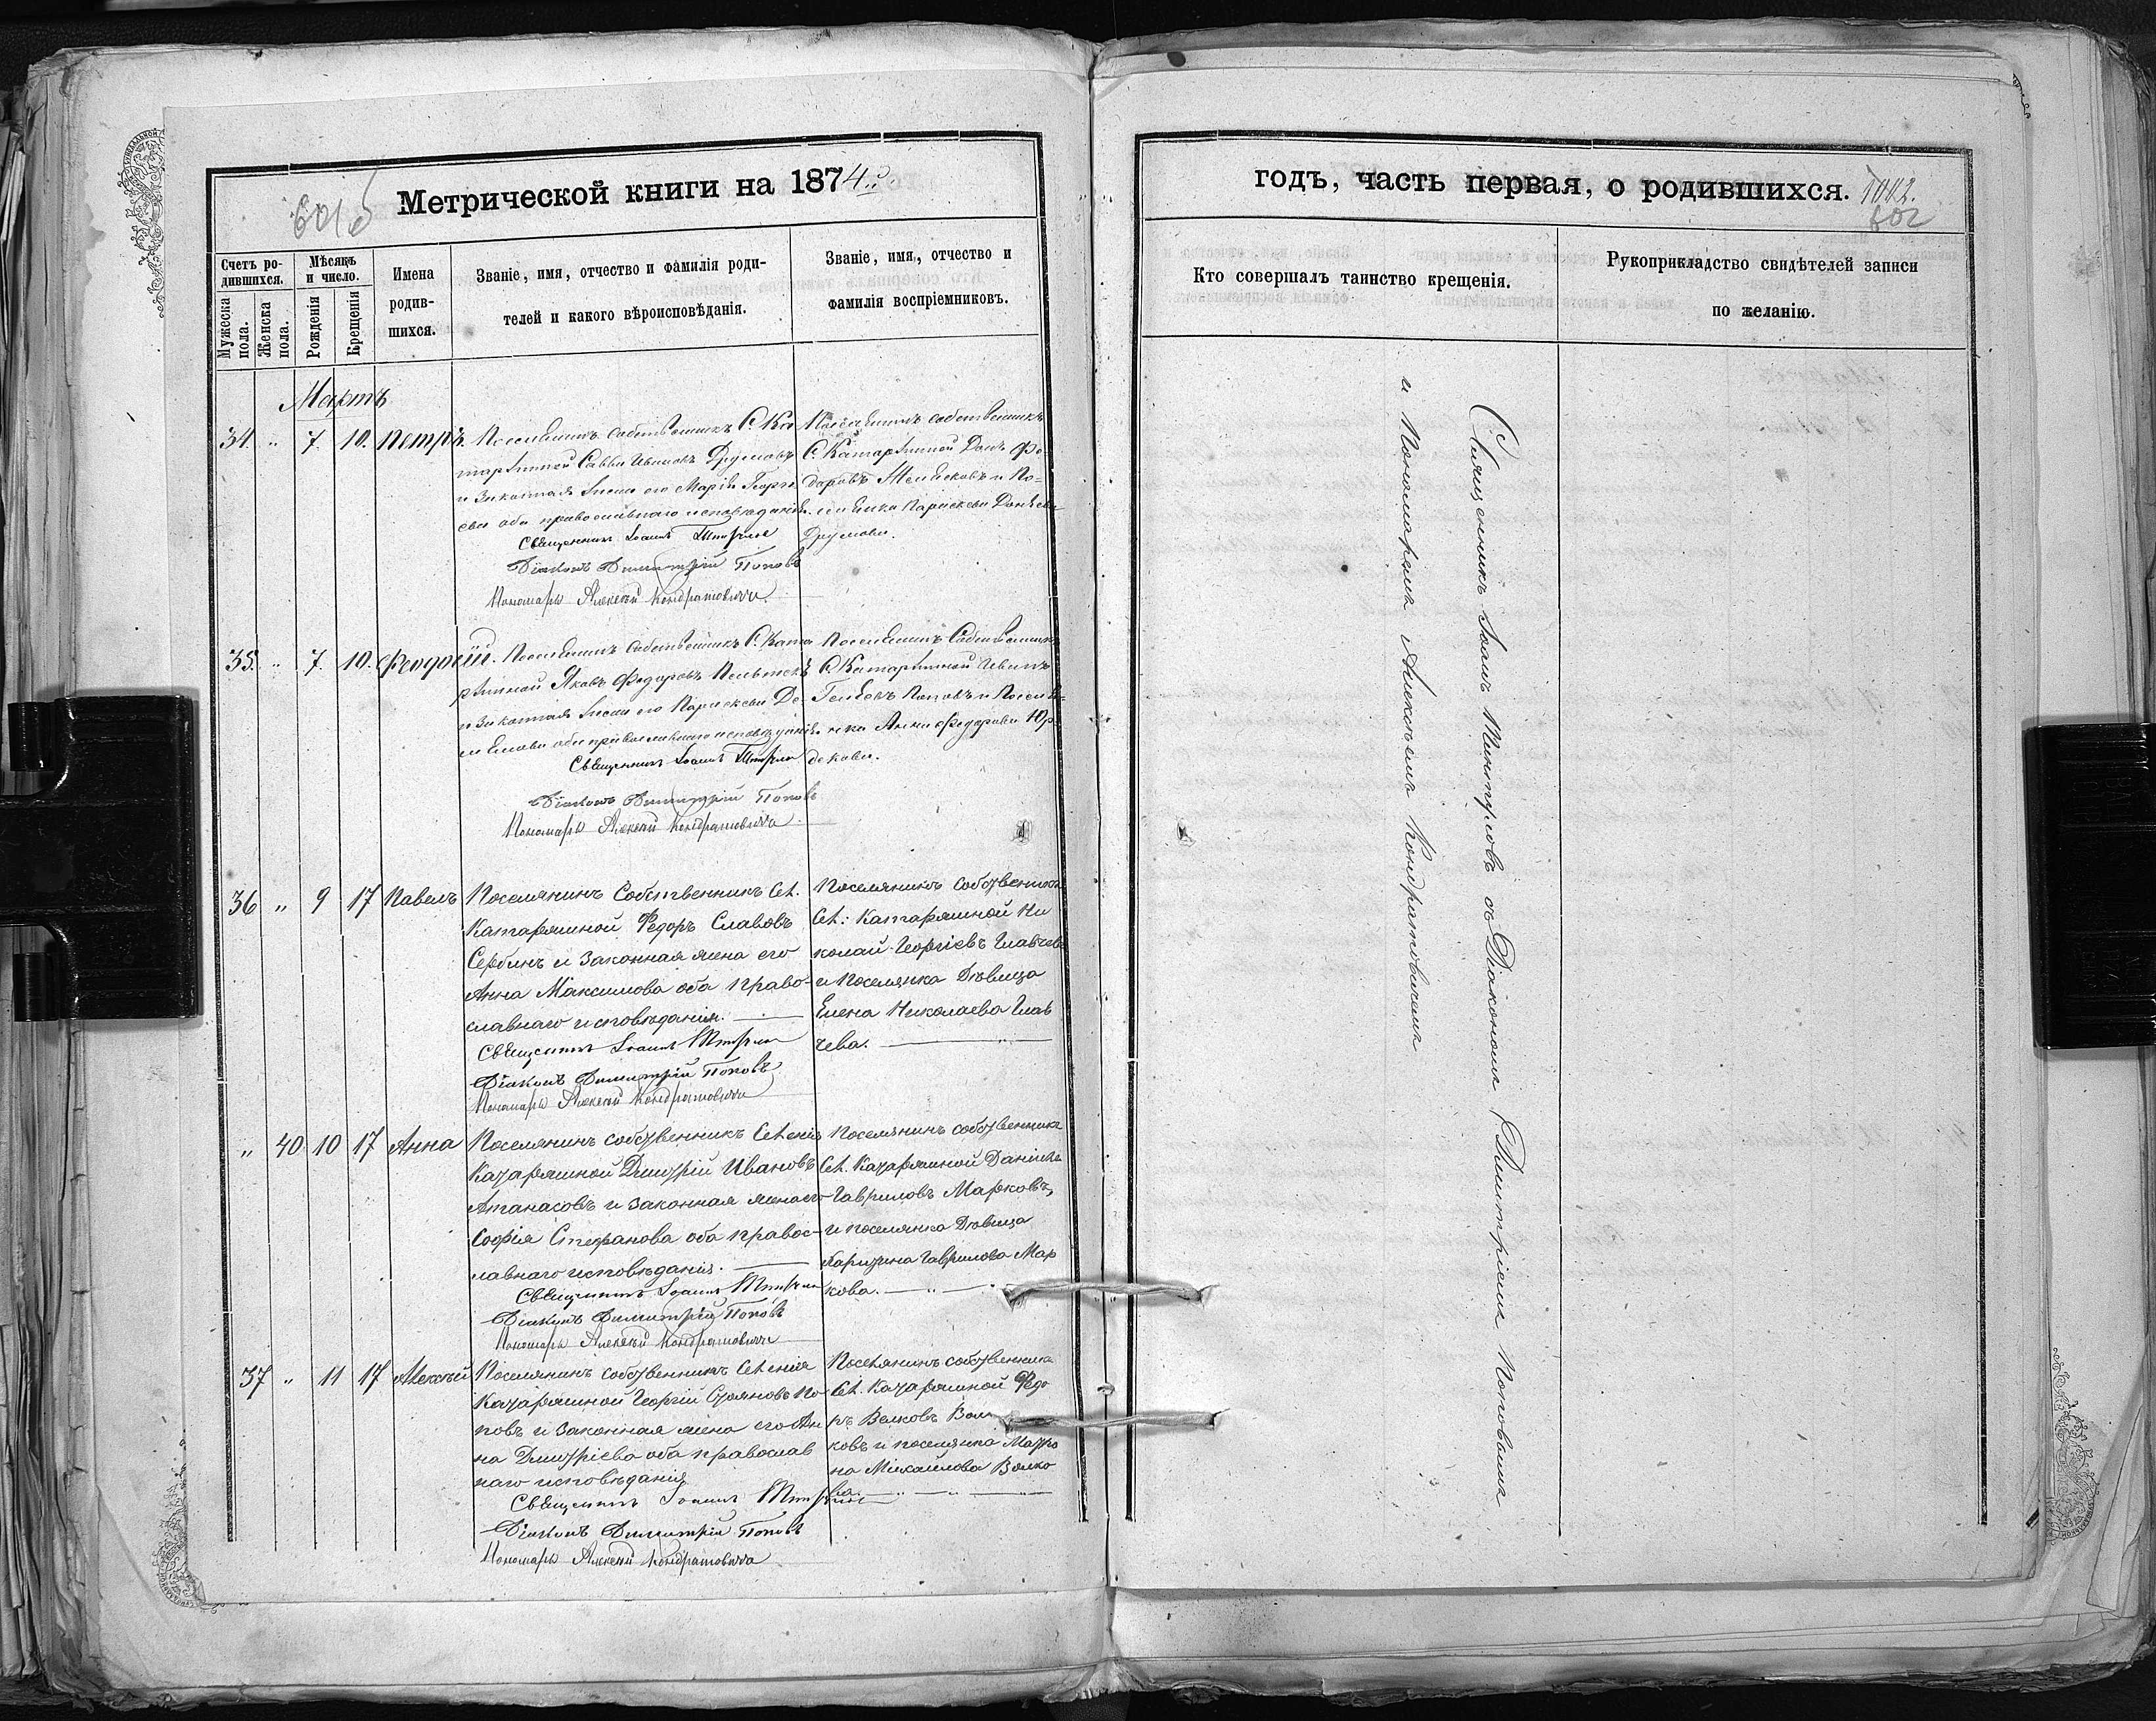 601 б
Метрической книги на 1874
Счетъ ро-
дившихся.
Мужеска
пола.
Женска
пола.
Мѣсяцъ
и число.
Рожденія
Крещенія
Имена
родив-
шихся.
Званіе, имя, отчество и фамилія роди-
телей и какого вѣроисповѣданія.
Званіе, имя, отчество и
фамилія воспріемниковъ.
Мартъ
34. „ 7. 10. Петръ.
Поселянинъ собственникъ С. Ка
таржиной Савва Ивановъ Друмовъ
и законная жена его Марія Георгі
ева оба православнаго исповѣданія.
Священникъ Іоаннъ
Діаконъ Димитрій Поповъ
Пономарь Алексѣй Кондратовичъ
Поселянинъ собственникъ
С. Катаржиной Ѳе
доровъ и По-
Параскева
Друмова.
35. „ 7. 10. Ѳеодосій.
Поселянинъ собственникъ С. Ката
ржиной Яковъ Федоровъ
и законная жена его Параскева Де
оба православнаго исповѣданія
Священникъ Іоаннъ
Діаконъ Димитрій Поповъ
Пономарь Алексѣй Кондратовичъ
Поселянинъ собственникъ
С. Катаржиной Иванъ
Поповъ и Поселя
нка Анна Федорова Юр
декова.
36 „ 9 17 Павелъ
Поселянинъ Собственникъ Сел.
Катаржиной Ѳедоръ Славовъ
Сербинъ и законная жена его
Анна Максимова оба право-
славнаго исповѣданія.
Священникъ Іоаннъ
Діаконъ Димитрій Поповъ
Пономарь Алексѣй Кондратовичъ
Поселянинъ собственникъ
Сел: Катаржиной Ни
колай Георгіевъ Главчевъ
и поселянка Дѣвица
Елена Николаева Глав
чева.
„ 40 10 17 Анна
Поселянинъ собственникъ Селенія
Катаржиной Дмитрій Ивановъ
Атанасовъ и законная жена его
Софія Стефанова оба правос-
лавнаго исповѣданія.
Священникъ Іоаннъ
Діаконъ Димитрій Поповъ
Пономарь Алексѣй Кондратовичъ
Поселянинъ собственникъ
Сел. Катаржиной Даніилъ
Гавриловъ Марковъ,
и поселянка Дѣвица
Гаврилова Мар
кова.
37 „ 11 17 Алексѣй
Поселянинъ собственникъ Селенія
Катаржиной Георгій Стояновъ По
повъ и законная жена его Ан
на Дмитріева оба православ
наго исповѣданія
Священникъ Іоаннъ
Діаконъ Димитрій Поповъ
Пономарь Алексѣй Кондратовичъ
Поселянинъ собственникъ
Сел. Катаржиной Ѳедо
ръ Велковъ Вол
ковъ и поселянка Матро
на Михайлова Волко
ва.
годъ, часть первая, о родившихся.
1002.
602
Кто совершалъ таинство крещенія.
Рукоприкладство свидѣтелей записи
по желанію.
Священникъ Іоаннъ съ Діакономъ Димитріемъ Поповымъ
и Пономаремъ Алексѣемъ Кондратовичемъ